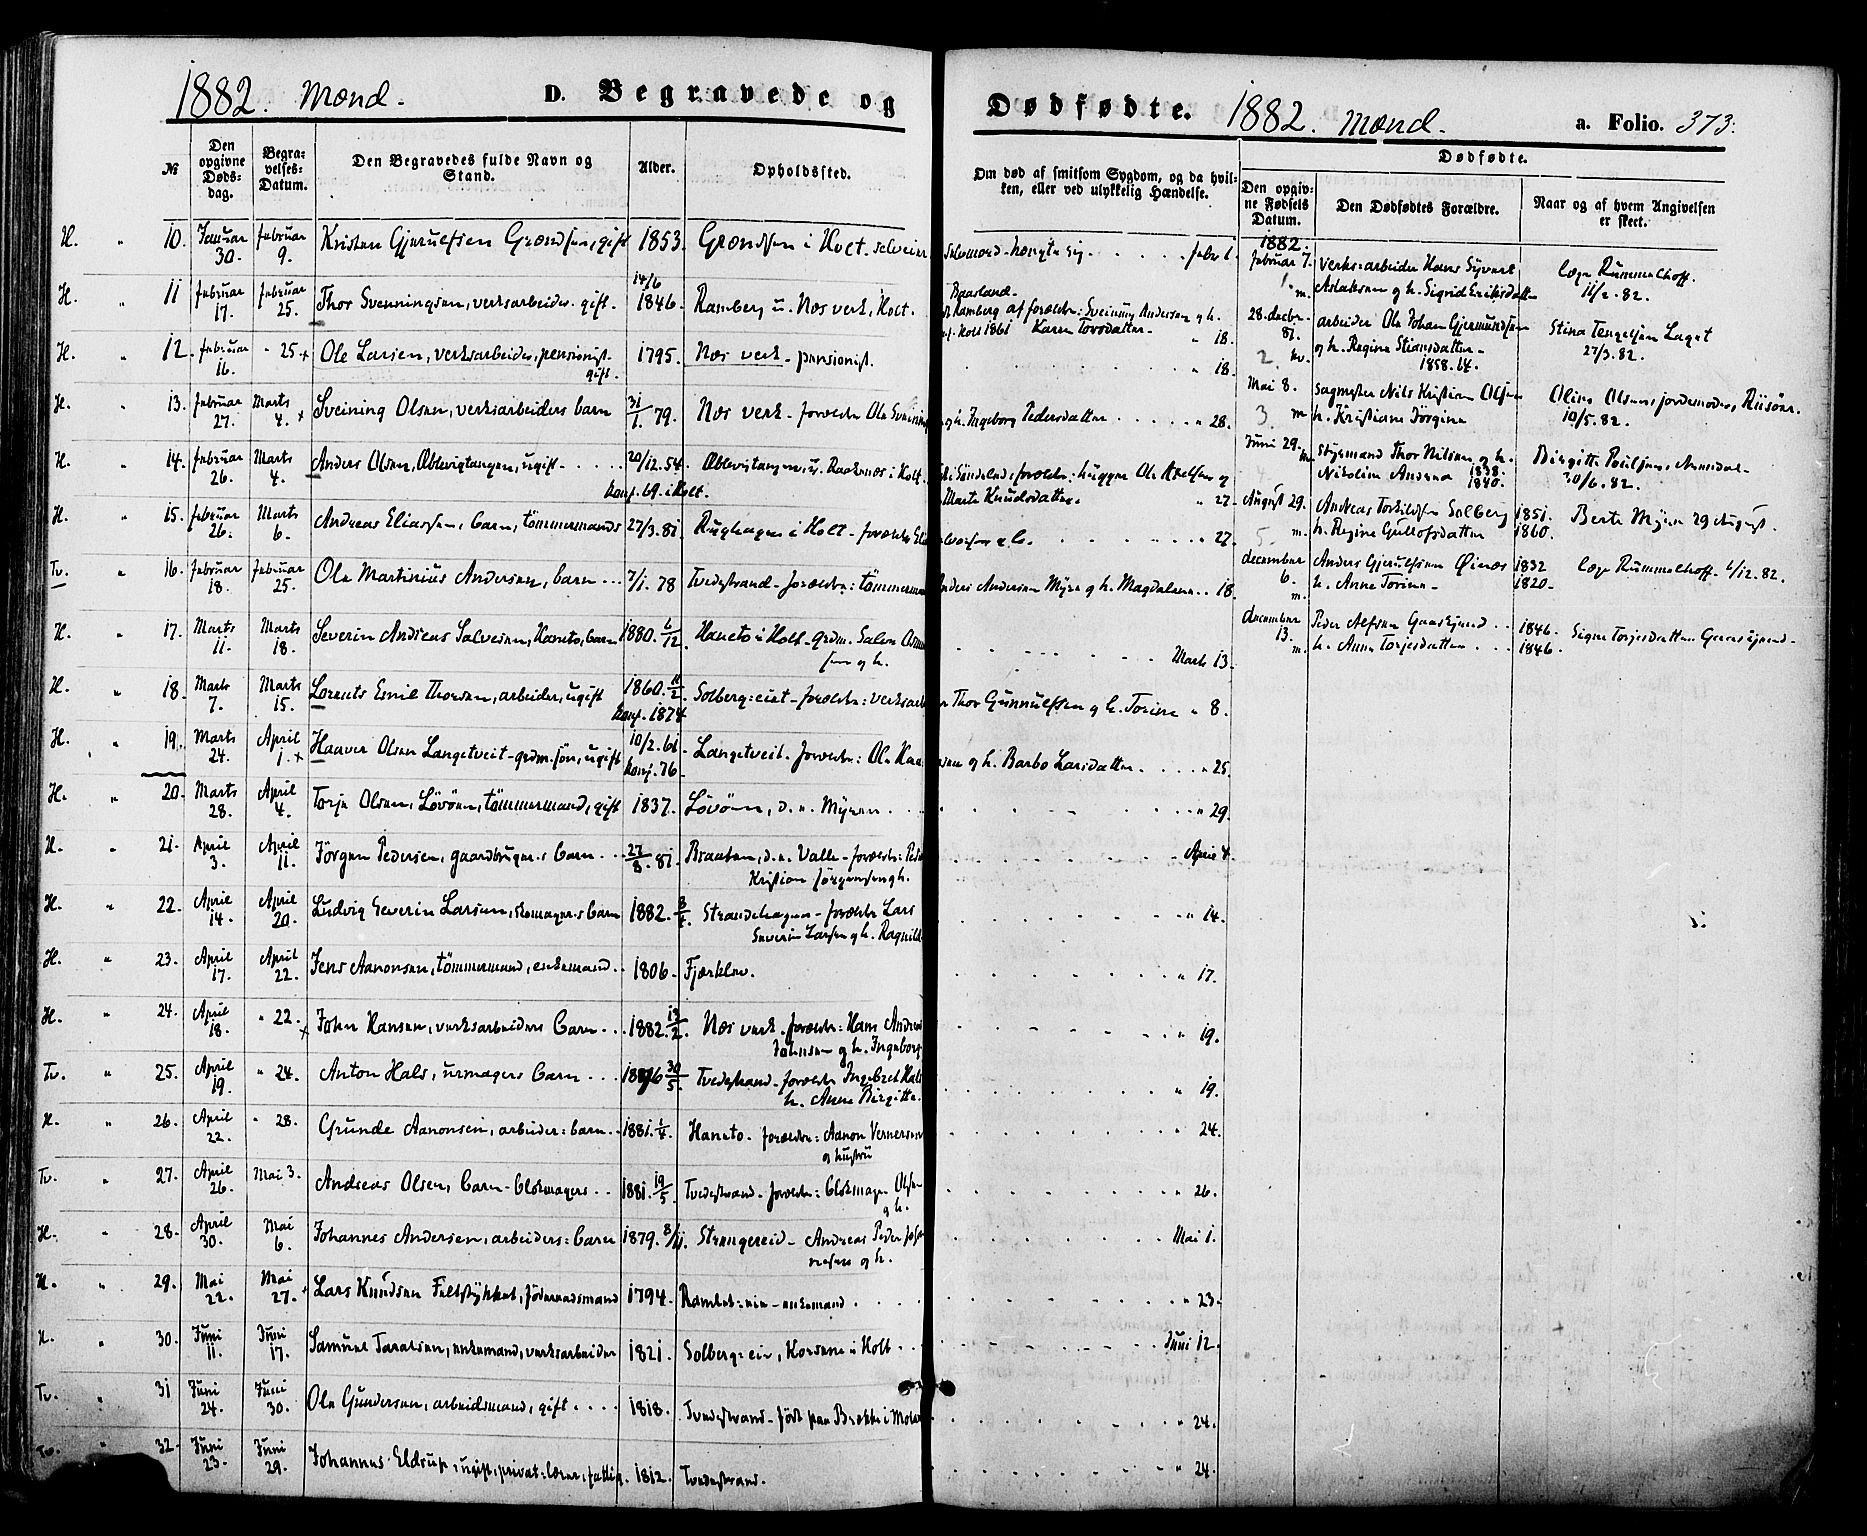 1882. Mænd. D. Begravede og Dødfødte. 1882. Mænd. a. Folio. 373.
№ Den opgivne Døds-dag. Begra-velses-Datum. Den Begravedes fulde Navn og Stand. Alder. Opholdssted. Om død af smitsom Sygdom, og da hvil-ken, eller ved ulykkelig Hændelse. Dødfødte.
Den opgiv-ne Fødsels Datum. Den Dødfødtes Forældre. Naar og af hvem Angivelsen er skeet.
H. " 10. Januar 30. Februar 9. Kristen Gjerulfsen Grændsen, gift 1853. Grændsen i Holt. selveier Selvmord - hængte sig. febr 1.
H. " 11 februar 17. februar 25. Thor Svenningsen, verksarbeider. gift. 14/6 1846. Ramberg u. Næs verk, Holt. Baasland.
Ramberg af forældre: Sveinung Andersen g h.
Holt 1861 Karen Torsdatter " 18.
H. " 12. februar 16. " 25 + Ole Larsen, verksarbeider, pensionist. gift. 1795. Næs verk - pensionist. " 18.
H. " 13. februar 27. Marts 4. + Sveining Olsen, verksarbeiders barn 31/1 79. Næs verk - forældre Ole Sveinings
og h. Ingeborg Pedersdatter " 28.
H. " 14. februar 26. Marts 4. Anders Olsen, Æblevigtangen, ugift 20/12. 54. Æblevigtangen, u. Raaknæs i Holt.
konf. 69. i Holt. Marte Knudsdatter. " 27.
H. " 15. februar 26. Marts 6. Andreas Eliassen, barn, tömmermands 27/3. 81. Rughagen i Holt - forældre " 27.
Tv. " 16. februar 18. februar 25. Ole Martinius Andersen, barn 7/1. 78 Tvedestrand - forældre: tömmermand
Anders Andersen Myre g h. Magdalena 18.
H. " 17. Marts 11. Marts 18. Severin Andreas Salvesen, Haneto, barn 1880. 6/12. Haneto i Holt - grdm. Salve
sen og h. Marts 13.
H. " 18. Marts 7. Marts 15. Lorents Emil Thorsen, arbeider, ugift 1860. 11/2. Solberg-eiet - forældre: verksarb
Thor Gunnulfsen g h. Torine " 8.
konf. 1874
H. " 19. Marts 24. April 1. + Haaver Olsen Langetveit - grdm. søn, ugift 10/2. 61. Langetveit. forældre: Ole
og h. Barbo Larsdatter. " 25.
konf. 76.
H. " 20. Marts 28. April 4. Torje Olsen, Lövöen, tömmermand, gift 1837. Lövöen, d. n. Myren. " 29.
H. " 21. April 3. April 11. Jörgen Pedersen, gaardbruger-s barn 27/8. 81. Braaten, d. n. Valle - forældre: Peder
Kristian Jörgensen g h. April 4.
H. " 22. April 14. April 20. Ludvig Severin Larsen, skomager-s barn 1882. 3/4. Strandhagen - forældre Lars
Severin Larsen g h. Ragnild " 14.
H. " 23. April 17. April 22. Jens Aanonsen, tömmermand, enkemand 1806. Fjærkleiv. " 17.
H. " 24. April 18. " 22. + John Hansen, verksarbeiders barn 1882. 13/2. Næs verk. forældre: Hans Andreas
Johnsen og h. Ingeborg " 19.
Tv. " 25. April 19. " 24. Anton Hals, urmagers barn 1876 30/5. Tvedestrand - forældre Ingebret Hals
h. Anne Birgitte. " 19.
H. " 26. April 22. " 28. Grunde Aanonsen, arbeider: barn 1881. Haneto. forældre: Aanon Vernersen
og hustru " 24.
Tv. " 27. April 26. Mai 3. Andreas Olsen, barn - blokmagers 1881. 19/5. Tvedestrand - forældre: blokmager Olsen
g h. " 26.
H. " 28. April 30. Mai 6. Johannes Andersen, arbeiders: barn 1879. Strengereid - Andreas Peder
g h. Mai 1.
H. " 29. Mai 22. Mai 27. + Lars Knudsen Feltstykket, föderaadsmand 1794. enkemand " 23.
H. " 30. Juni 11. Juni 17. Samuel Taralsen, enkemand, verksarbeider 1821. Solberg-eie, i Holt Juni 12.
Tv. " 31 Juni 24. Juni 30. Ole Gundersen, arbeidsmand, gift 1818. Tvedestrand - födt paa Brække i " 24.
Tv. " 32. Juni 23. Juni 29. Johannes Eldrup, ugift, privat-lærer, fattig. 1812. Tvedestrand. " 24.
1882. Februar 7. 1. m. Verks-arbeider Hans Syvert
Aslaksen g h. Sigrid Eriksdatter læge Rummelhoff. 11/2. 82.
28. decbr 81. 2. kv. arbeider Ole Johan Gjermundsen
og h. Regine Stiansdatter - 1858. 64. Stina Tengelsen Laget 27/3. 82.
Mai 8. 3. m sagmester Nils Kristian Olsen
h. Kristiane Jörgine Oline Olsen, jordemoder, Riisöen. 10/5. 82.
Juni 29. 4. m. styrmand Thor Nilsen g h. 1838.
Nikoline Andrea 1840. Birgitte Poulsen, Arendal - 30/6. 82.
August 29. 5. m. Andreas Torkildsen Solberg 1851.
h. Regine Gullofsdatter 1860. Berte Myre 29 August.
december 6. m. Anders Gjerulfsen Öines 1832
h. Anne Torine - 1820. læge Rummelhoff. 6/12. 82.
december 13. m. Peder Alfsen Gaaskjend 1846.
h. Anne Torjesdatter 1846. Signe Torjesdatter Gaaskjend -